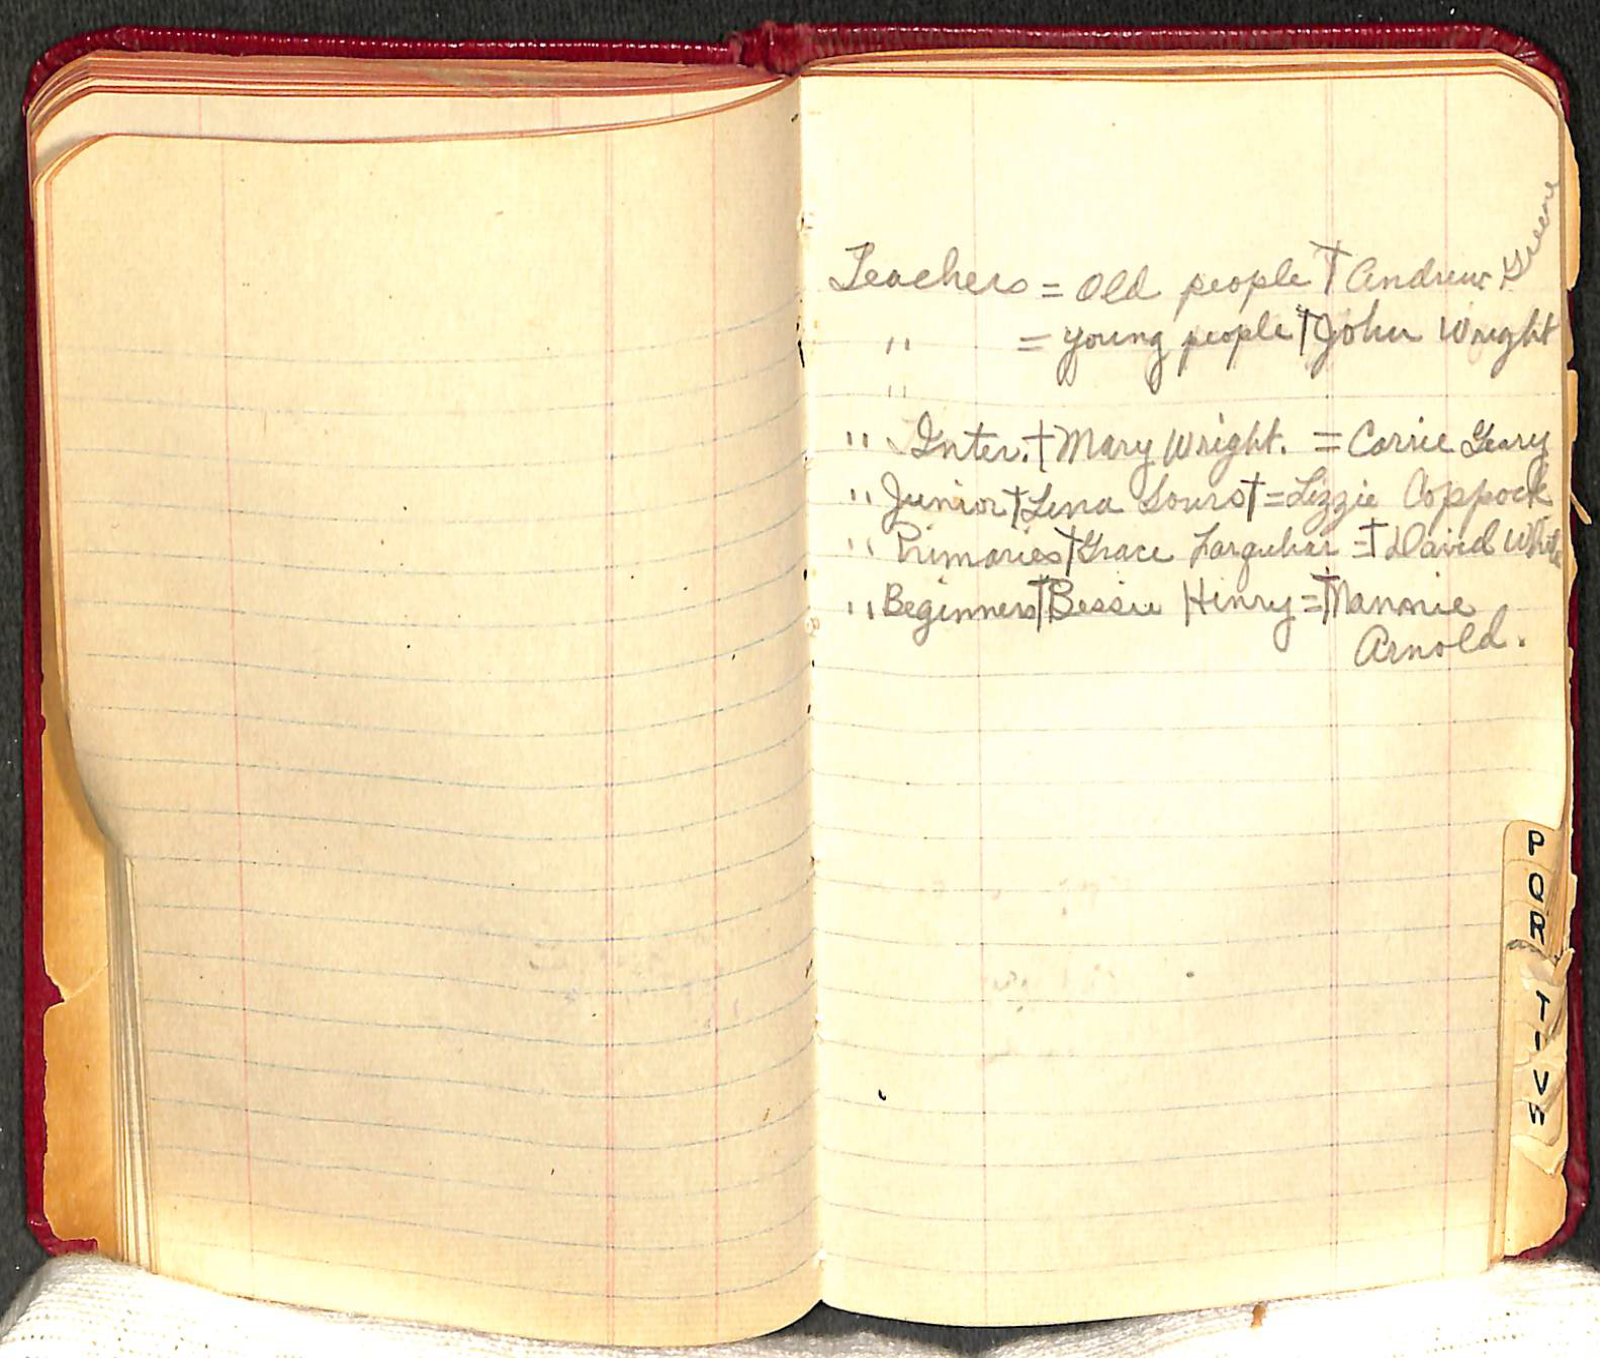 Teachers = Old people † Andrew Greene
" = young people † John Wright
"
" Inter. † Mary Wright. = Carrie Geary
" Junior † Lena Sours † = Lizzie Coppock
" Primaries † Grace Farquhar = † David White
" Beginners † Bessie Henry = † Mannie
Arnold.
P
Q
R
T
U
V